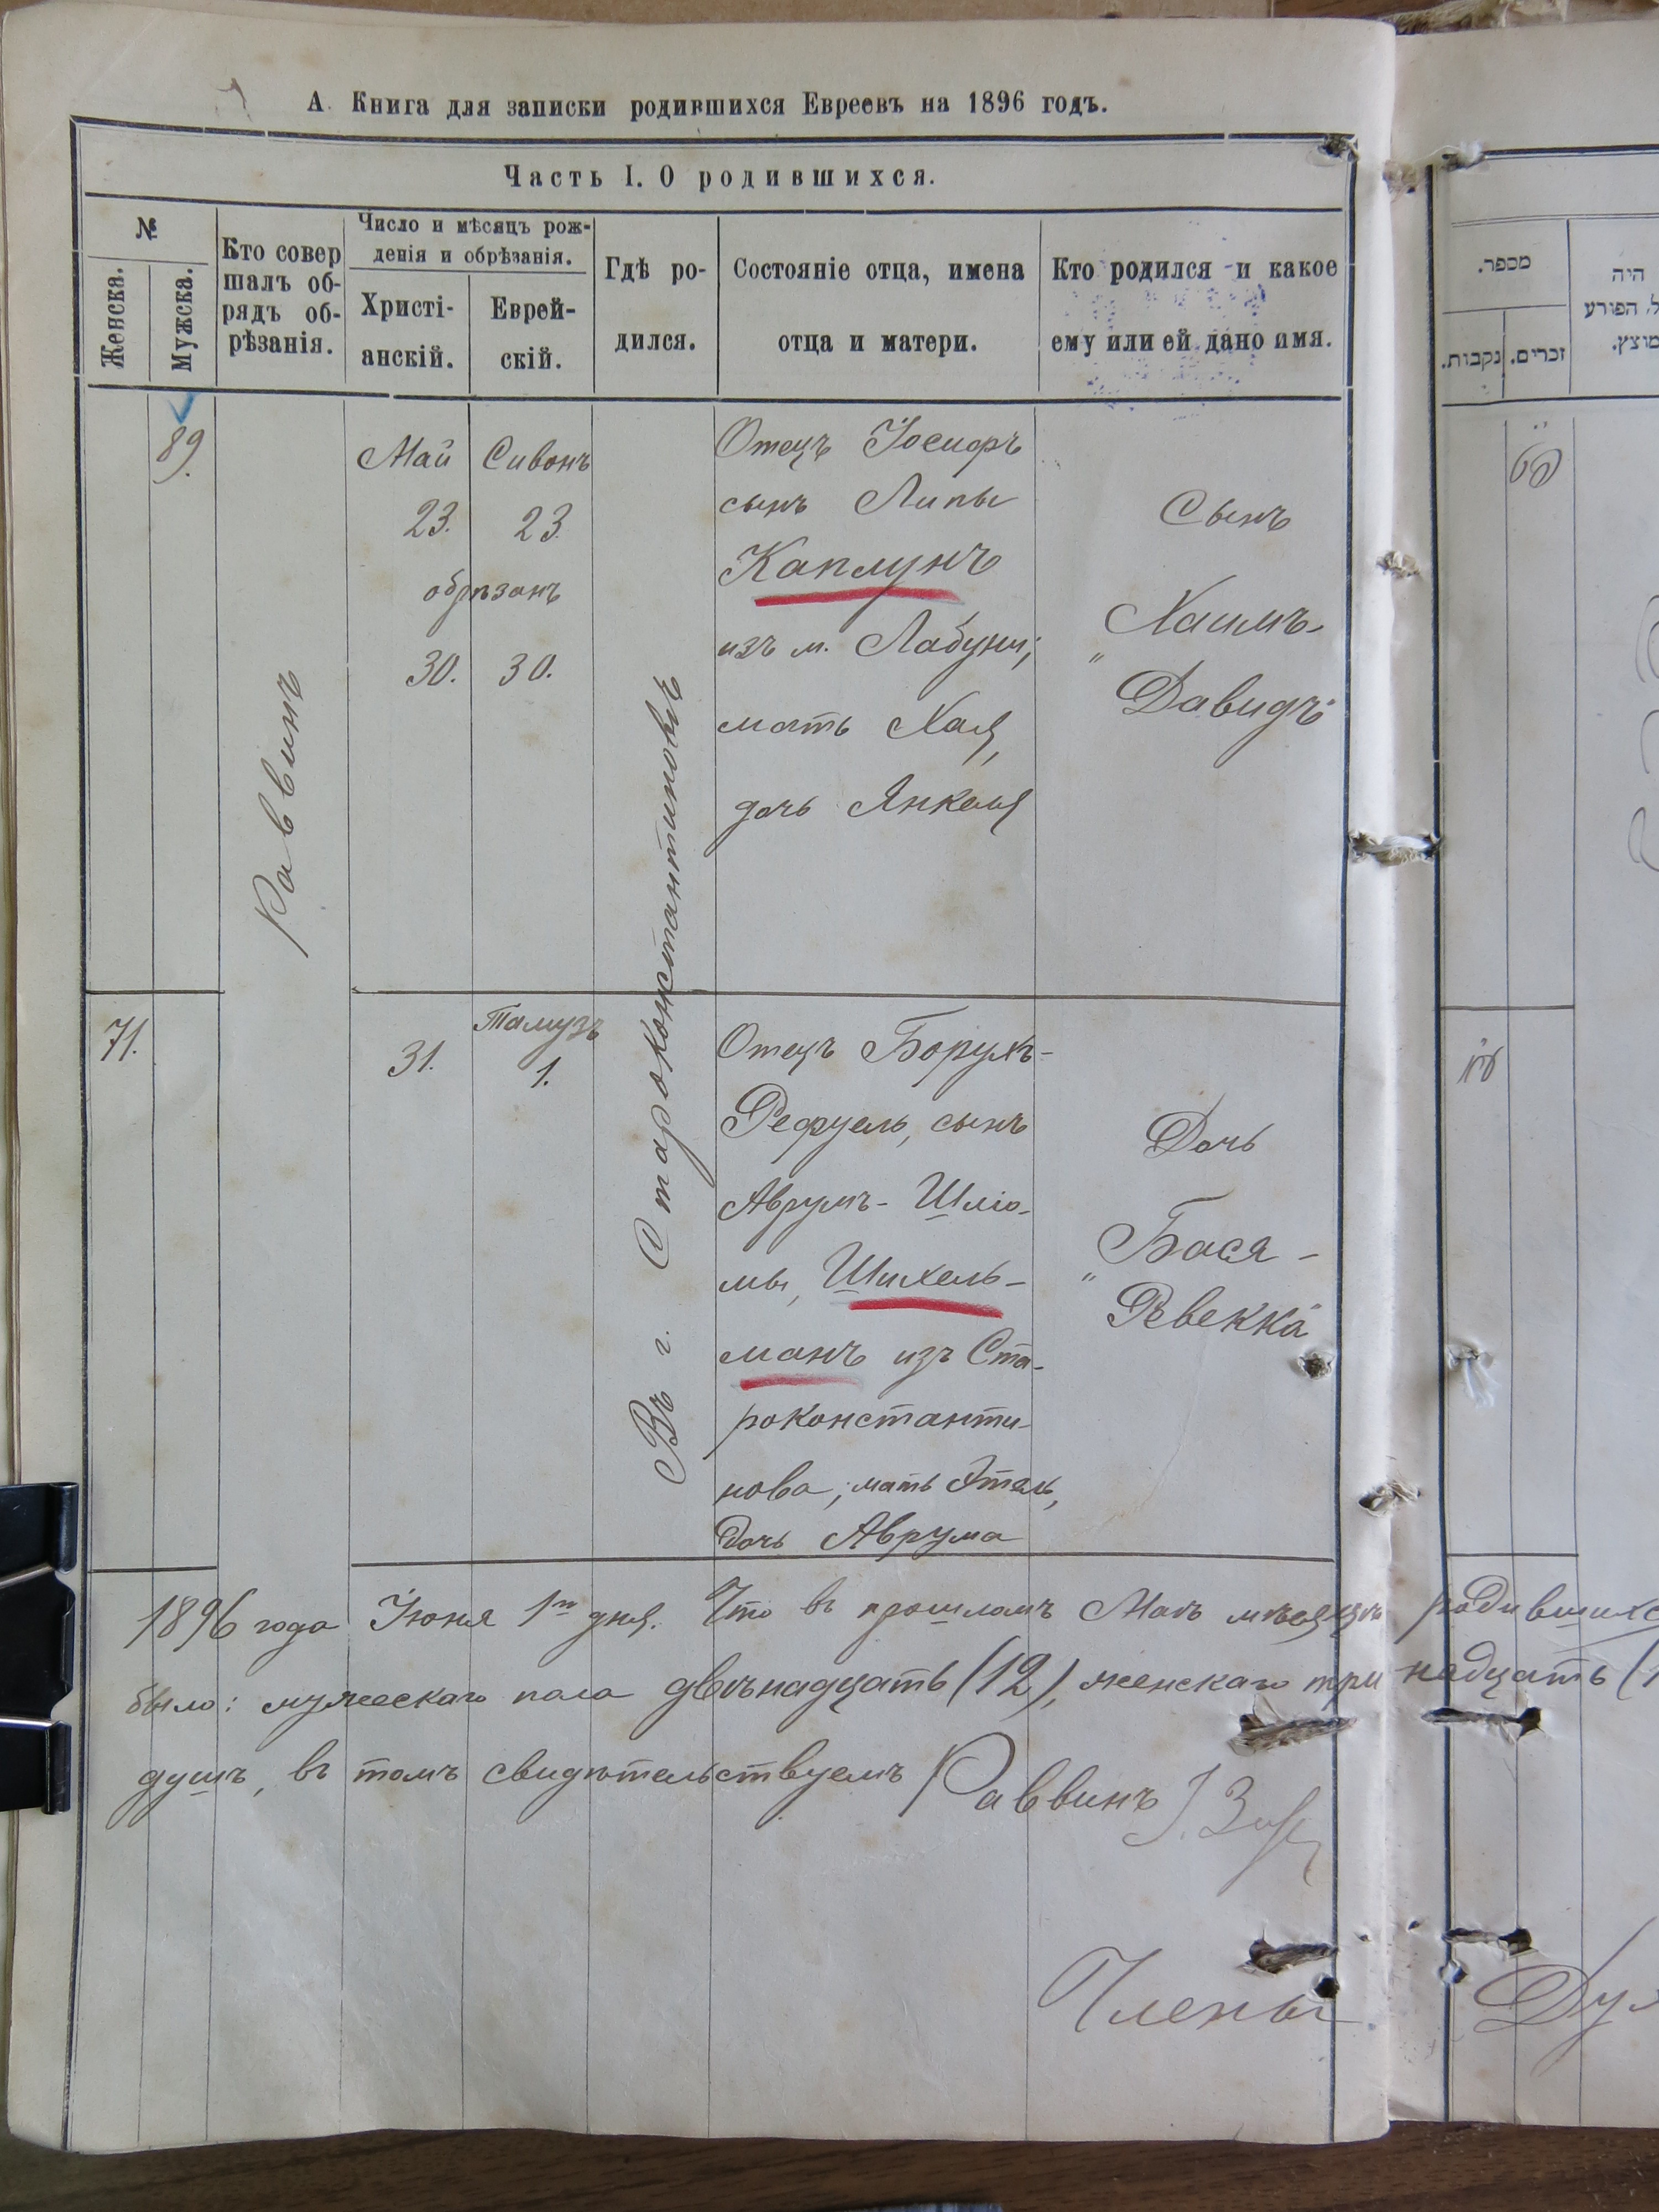 А. Книга для записки родившихся Евреевъ на 1896 годъ.
Часть I. О родившихся.
№
Женска.
Мужска.
Кто совер
шалъ об-
рядъ об-
рѣзанія.
Число и мѣсяцъ рож-
денія и обрѣзанія.
Христі-
анскій.
Еврей-
скій.
Гдѣ ро-
дился.
Состояніе отца, имена
отца и матери.
Кто родился и какое
ему или ей дано имя.
מספר.
זכרים.
נקבות.
היה
הפורע
89.
Раввинъ
Май
23.
обрѣзанъ
30.
Сивонъ
23.
30.
Въ г. Староконстантиновѣ
Отецъ Іосифъ
сынъ Липы
Каплунъ
изъ м. Лабуни;
мать Хая,
дочь Янкеля
Сынъ
„Хаимъ-
Давидъ“
71.
31.
Тамузъ
1.
Отецъ Борухъ-
Рефуель, сынъ
Аврумъ-Шлио-
мы, Шихель-
манъ изъ Ста-
роконстанти-
нова; мать Этель,
дочь Аврума
Дочь
„Бася-
Ревекка“
1896 года Іюня 1го дня. Что въ прошломъ Маѣ мѣсяцѣ родившихс
было: мужескаго пола двѣнадцать (12), женскаго тринадцать (1
душъ, въ томъ свидѣтельствуемъ Раввинъ
Члены